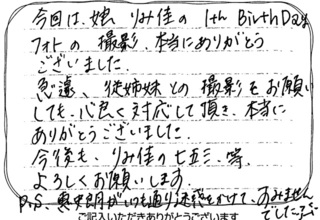 今回は、娘 りみ佳の 1th BirthDay
フォトの 撮影、本当にありがとう
ございました。
急遽、従姉妹との撮影をお願い
しても、心良く対応して頂き、本当に
ありがとうございました。
今後も、りみ佳の七五三、等、
よろしくお願いします
P.S がいつも通り迷惑をかけて、すみません
でした
ご記入いただきありがとうございます